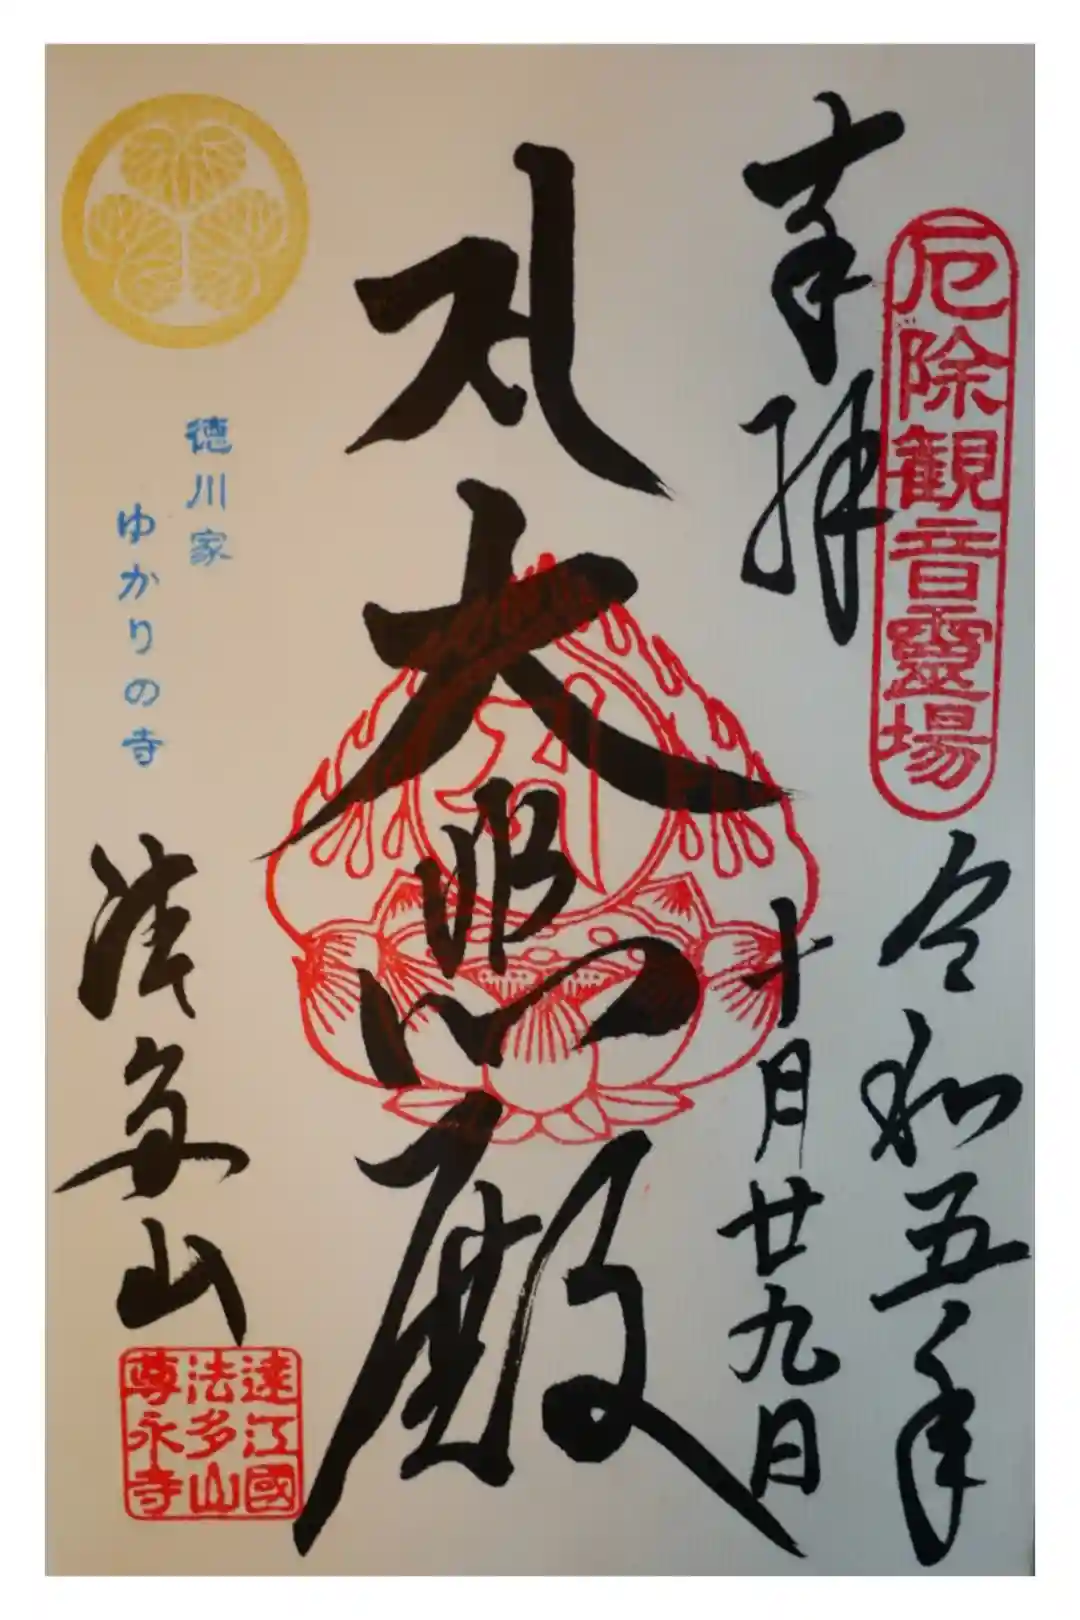 厄除観音靈場
奉拝
令和五年
十月廿九日
大悲殿
徳川家
ゆかりの寺
法多山
遠江國
法多山
尊永寺